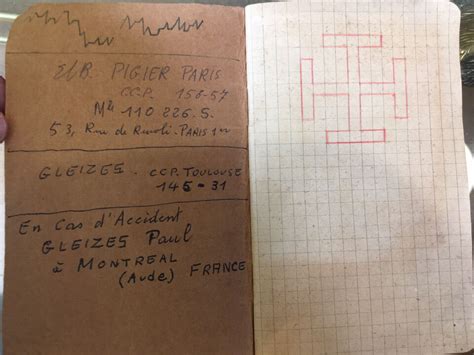 PIGIER PARIS
CCP. 156-57
Mle 110 226. S.
53, Rue de Rivoli. PARIS 1er
GLEIZES. CCP. TOULOUSE
145-31
En Cas d'Accident
GLEIZES Paul
à MONTREAL
(Aude) FRANCE